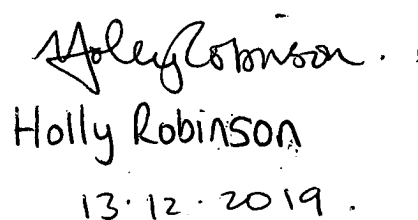 Holly Robinson.
Holly Robinson
13.12.2019.